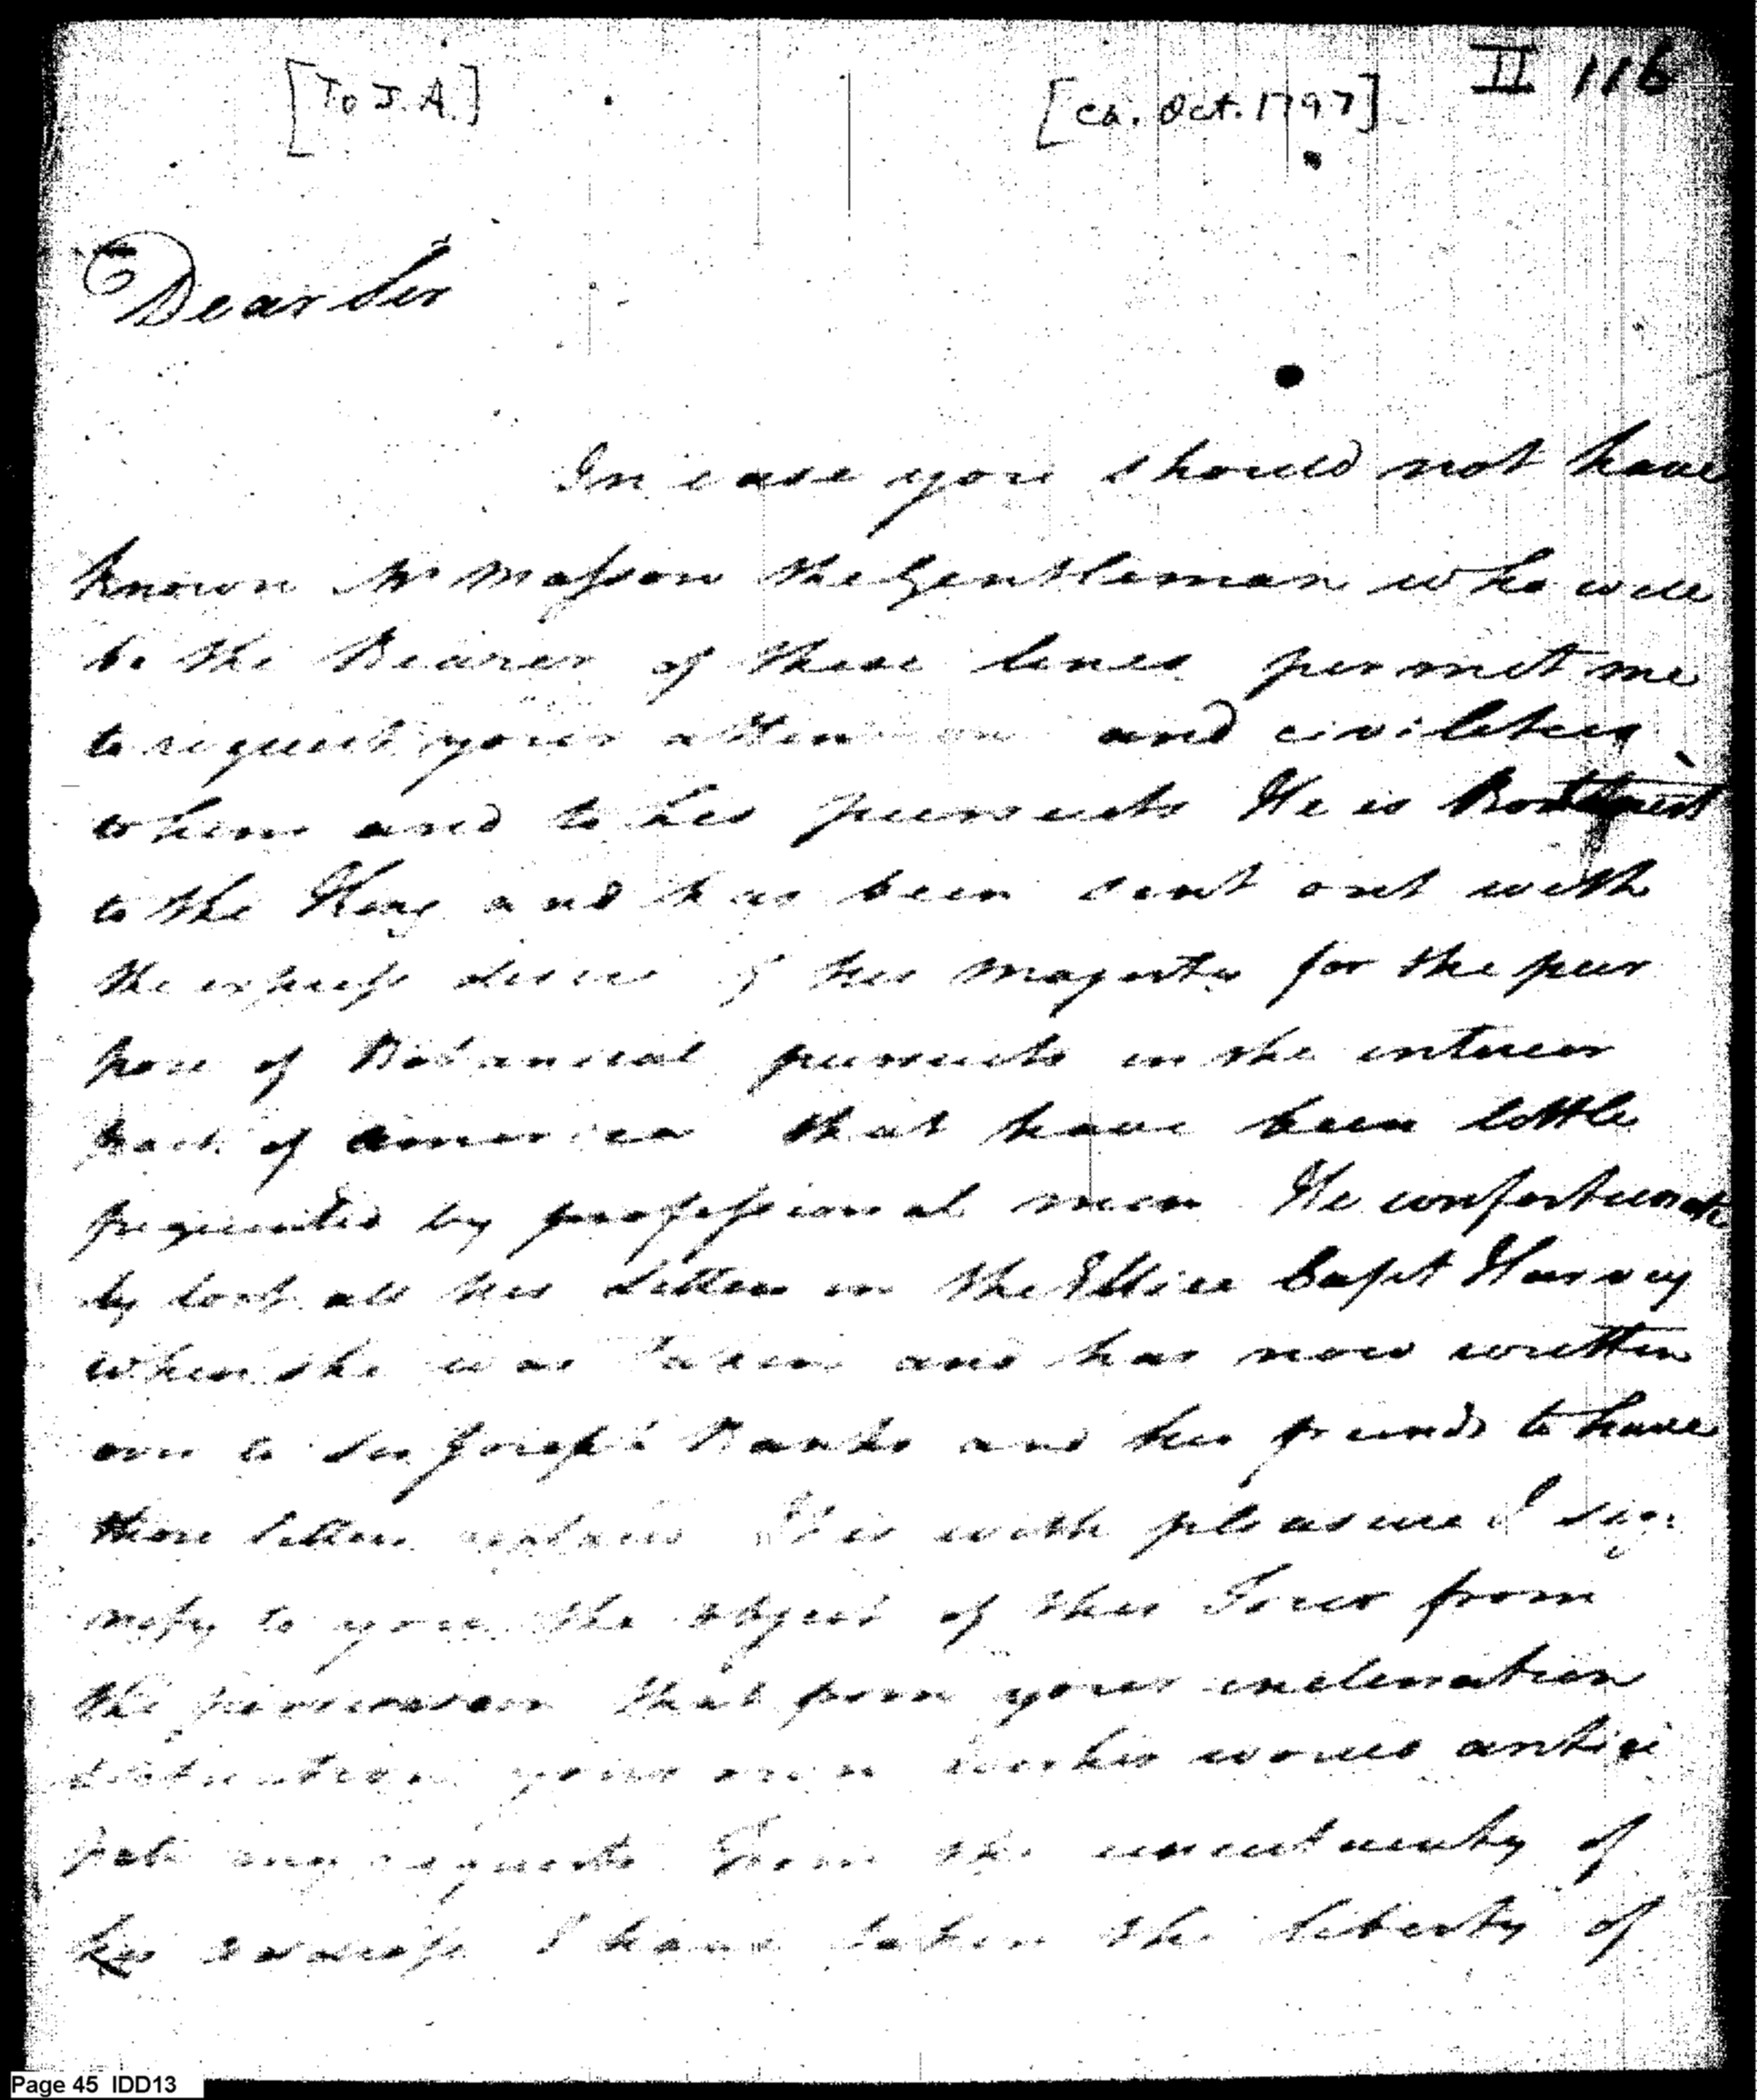 [To J. A.] [ca. Oct. 1797] II 116
Dear Sir
In case you should not have
known Mr Masson the Gentleman who will
be the Bearer of these lines permit me
to request your attention and civilities
to him and to his pursuits He is Botanist
to the King and has been sent out with
the express desire of his Majesty for the pur
pose of Botanical pursuits in the interior
part of America that have been little
frequented by professional men He unfortunate
ly lost all his Letters in the Ellice Capt Harvey
when she was taken and has now written
over to Sir Joseph Banks and his friends to have
those letters replaced It is with pleasure I sig
nify to you the object of this Tour from
the persuasion that from your inclination
& situation your own wishes would antici
pate any requests From the uncertainty of
his address I have taken the liberty of
Page 45 IDD13